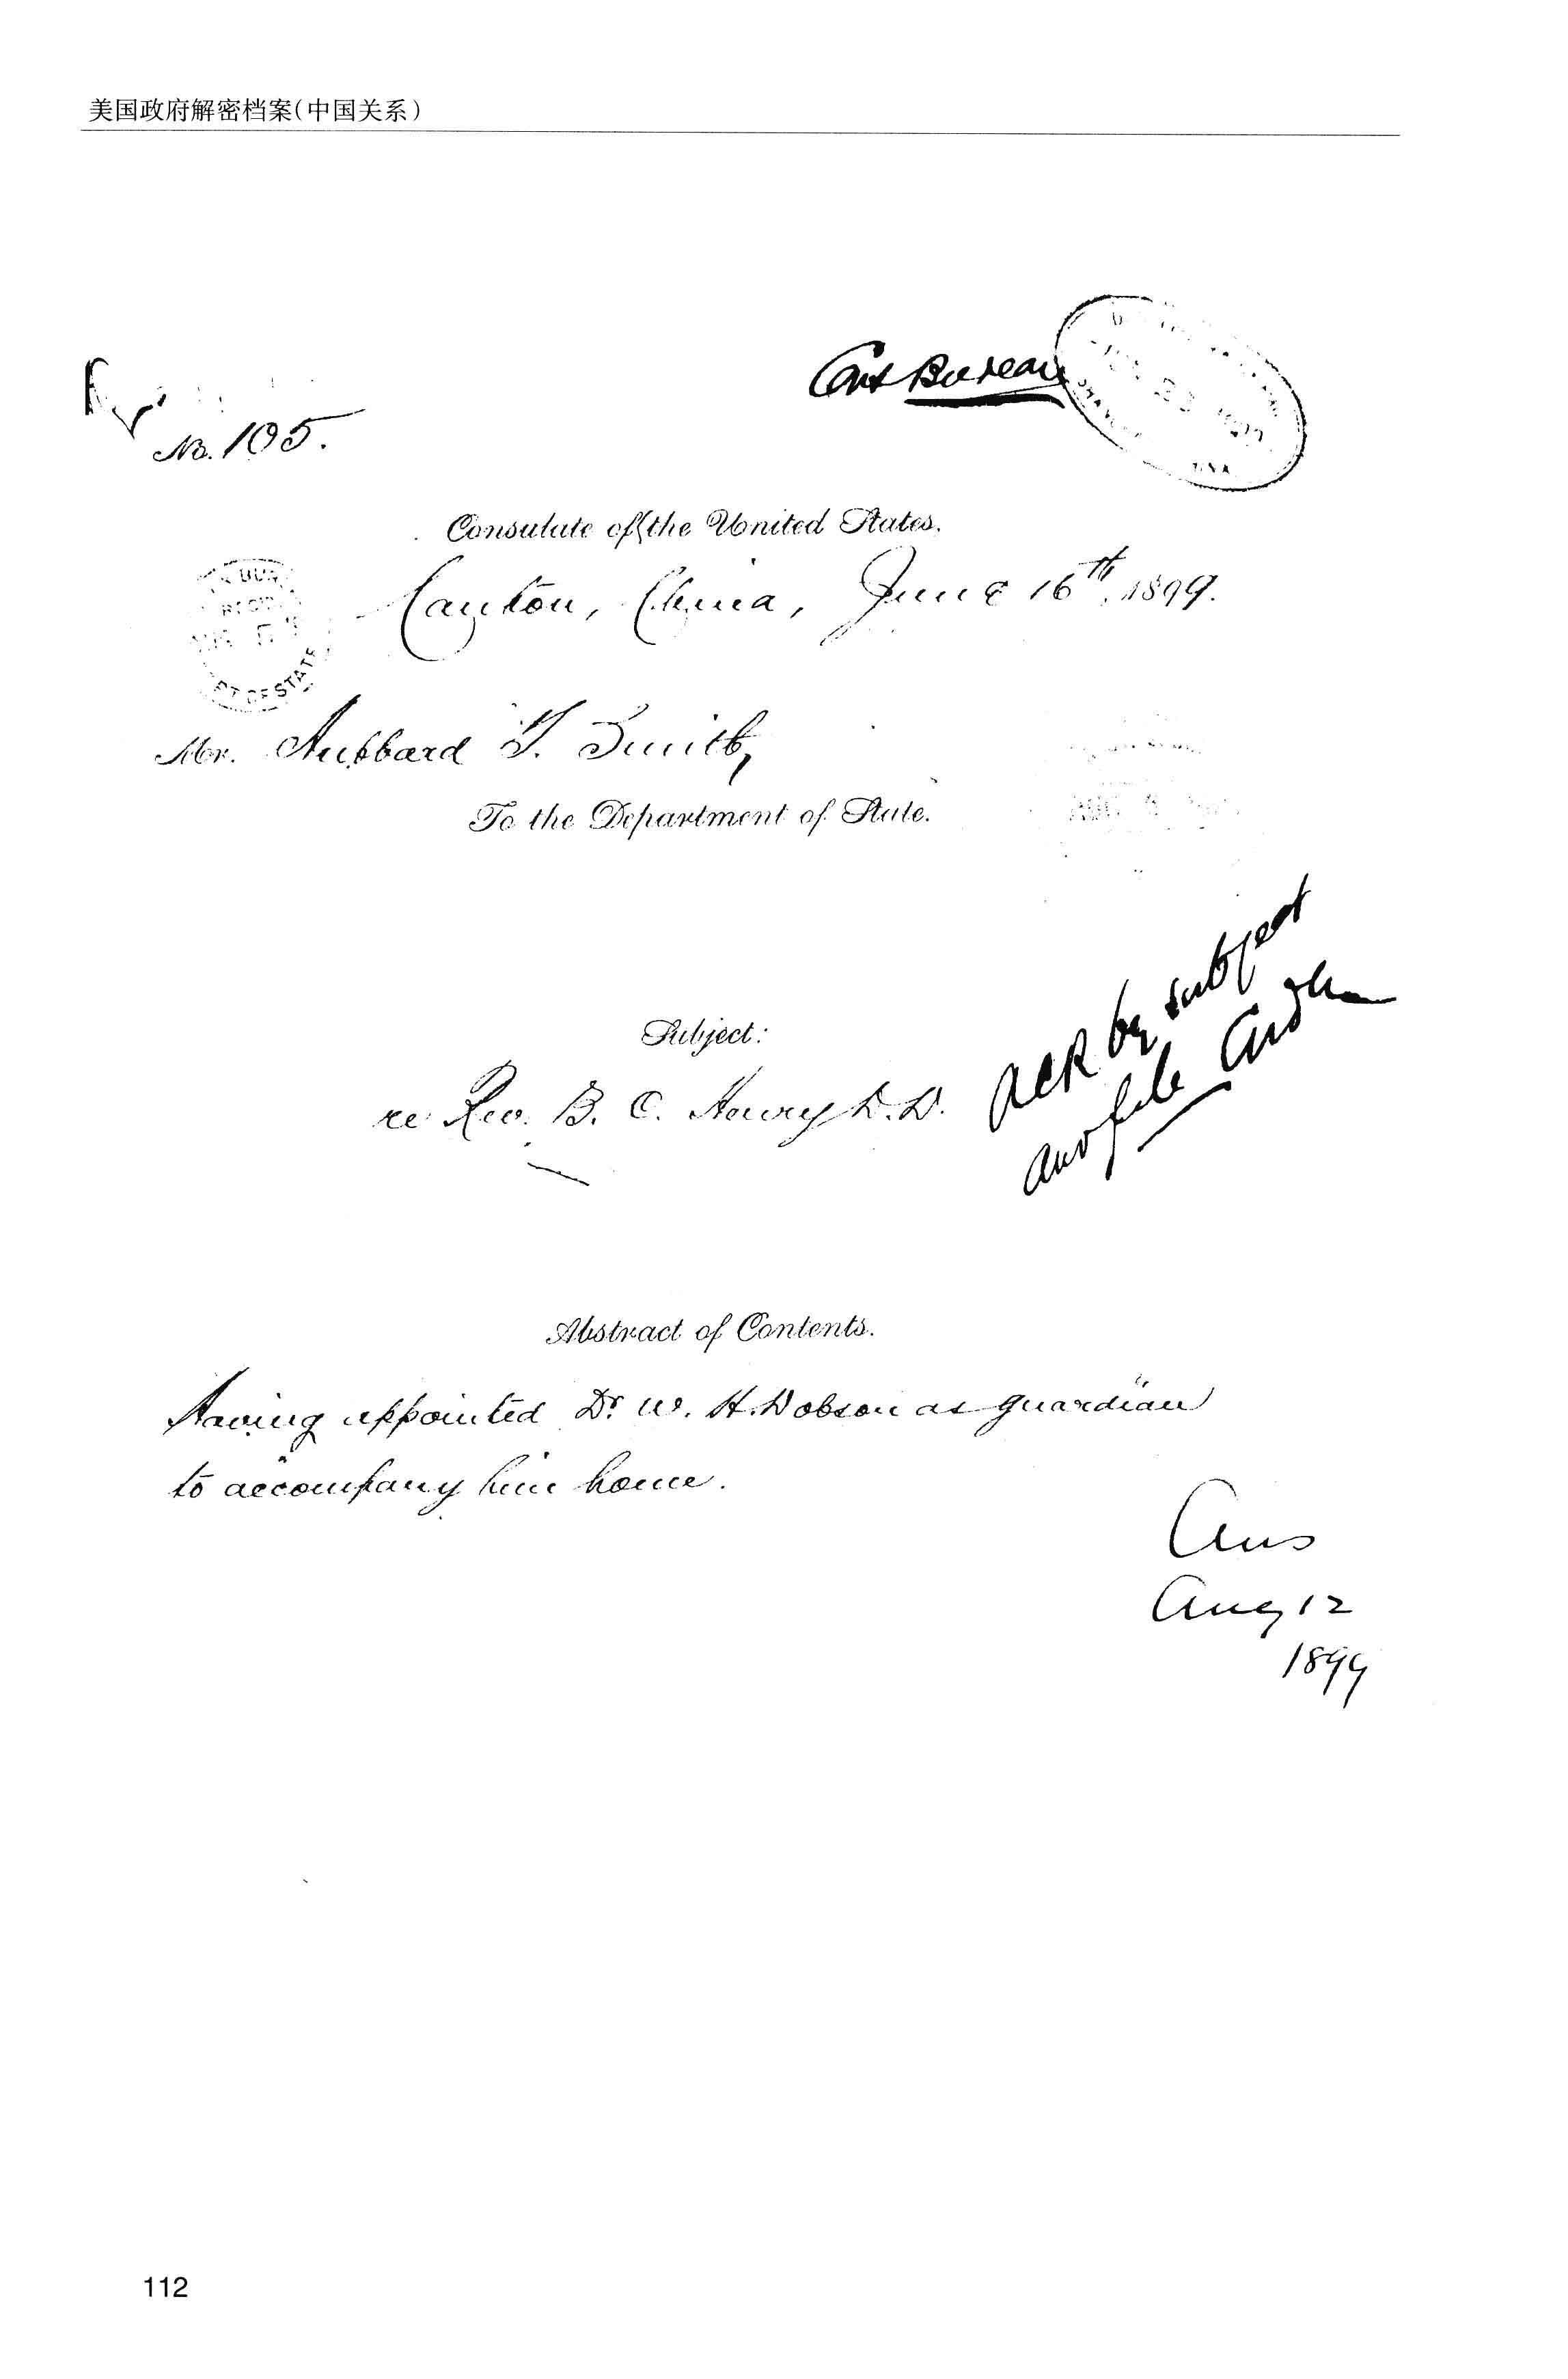 美国政府解密档案(中国关系)
Bureau
No. 105.
Consulate of the United States.
Canton, China, June 16th, 1899.
PT OF STATE
Mr. Hubbard T. Smith,
To the Department of State.
Subject:
re Rev. B. C. Henry D.D.
Ack by subject
and file
Abstract of Contents.
Having appointed Dr. W. H. Dobson as guardian
to accompany him home.
Ans
Aug 12
1899
112